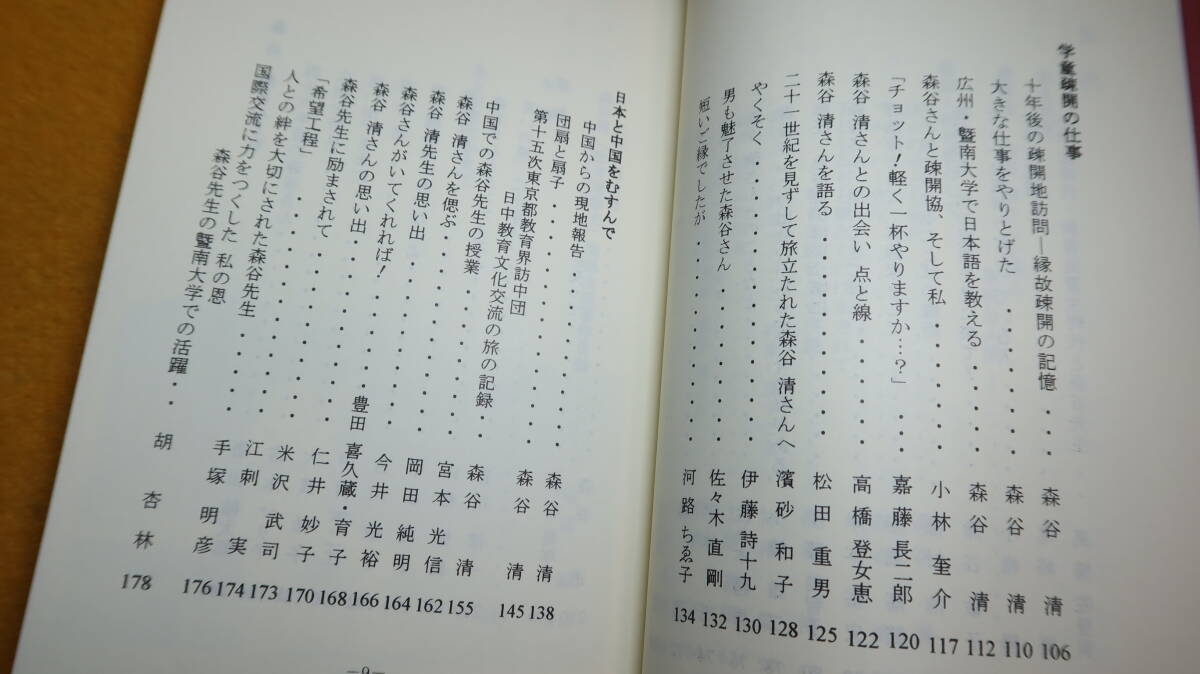 学童疎開の仕事
十年後の疎開地訪問―縁故疎開の記憶・・・森谷 清 106
大きな仕事をやりとげた・・・・・・・森谷 清 110
広州・曁南大学で日本語を教える・・・・・森谷 清 112
森谷さんと疎開協、そして私・・・・・・小林 奎介 117
「チョット!軽く一杯やりますか…?」・・・嘉藤 長二郎 120
森谷 清さんとの出会い 点と線・・・・・高橋 登女恵 122
森谷 清さんを語る・・・・・・・・・松田 重男 125
二十一世紀を見ずして旅立たれた森谷 清さんへ 濱砂 和子 128
やくそく・・・・・・・・・・・・伊藤 詩十九 130
男も魅了させた森谷さん・・・・・・・佐々木 直剛 132
短いご縁でしたが・・・・・・・・・河路 ちゑ子 134
日本と中国をむすんで
中国からの現地報告・・・・・・・・森谷 清 138
団扇と扇子・・・・・・・・・・・森谷 清 145
第十五次東京都教育界訪中団
日中教育文化交流の旅の記録・・森谷 清 155
中国での森谷先生の授業・・・・・・宮本 光信 162
森谷 清さんを偲ぶ・・・・・・・・岡田 純明 164
森谷 清先生の思い出・・・・・・・今井 光裕 166
森谷さんがいてくれれば!・・・・豊田 喜久蔵・育子 168
森谷 清さんの思い出・・・・・・・仁井 妙子 170
森谷先生に励まされて・・・・・・・米沢 武司 173
「希望工程」・・・・・・・・・・江刺 実 174
人との絆を大切にされた森谷先生・・・・手塚 明彦 176
国際交流に力をつくした 私の恩
森谷先生の曁南大学での活躍・・胡 杏林 178
―9―